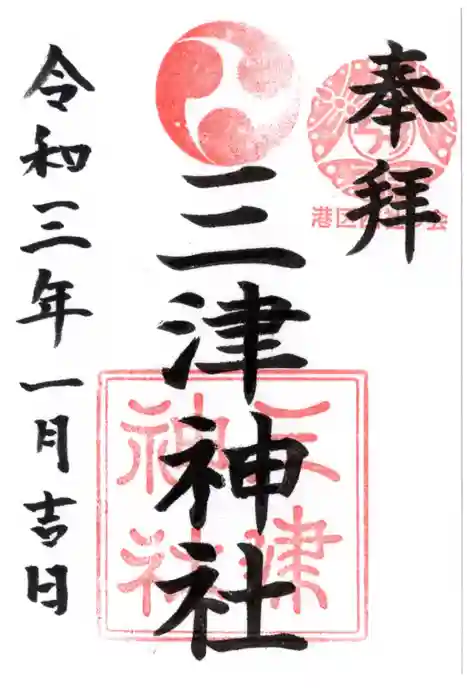 奉拝
三津神社
令和三年一月吉日
三津
神社